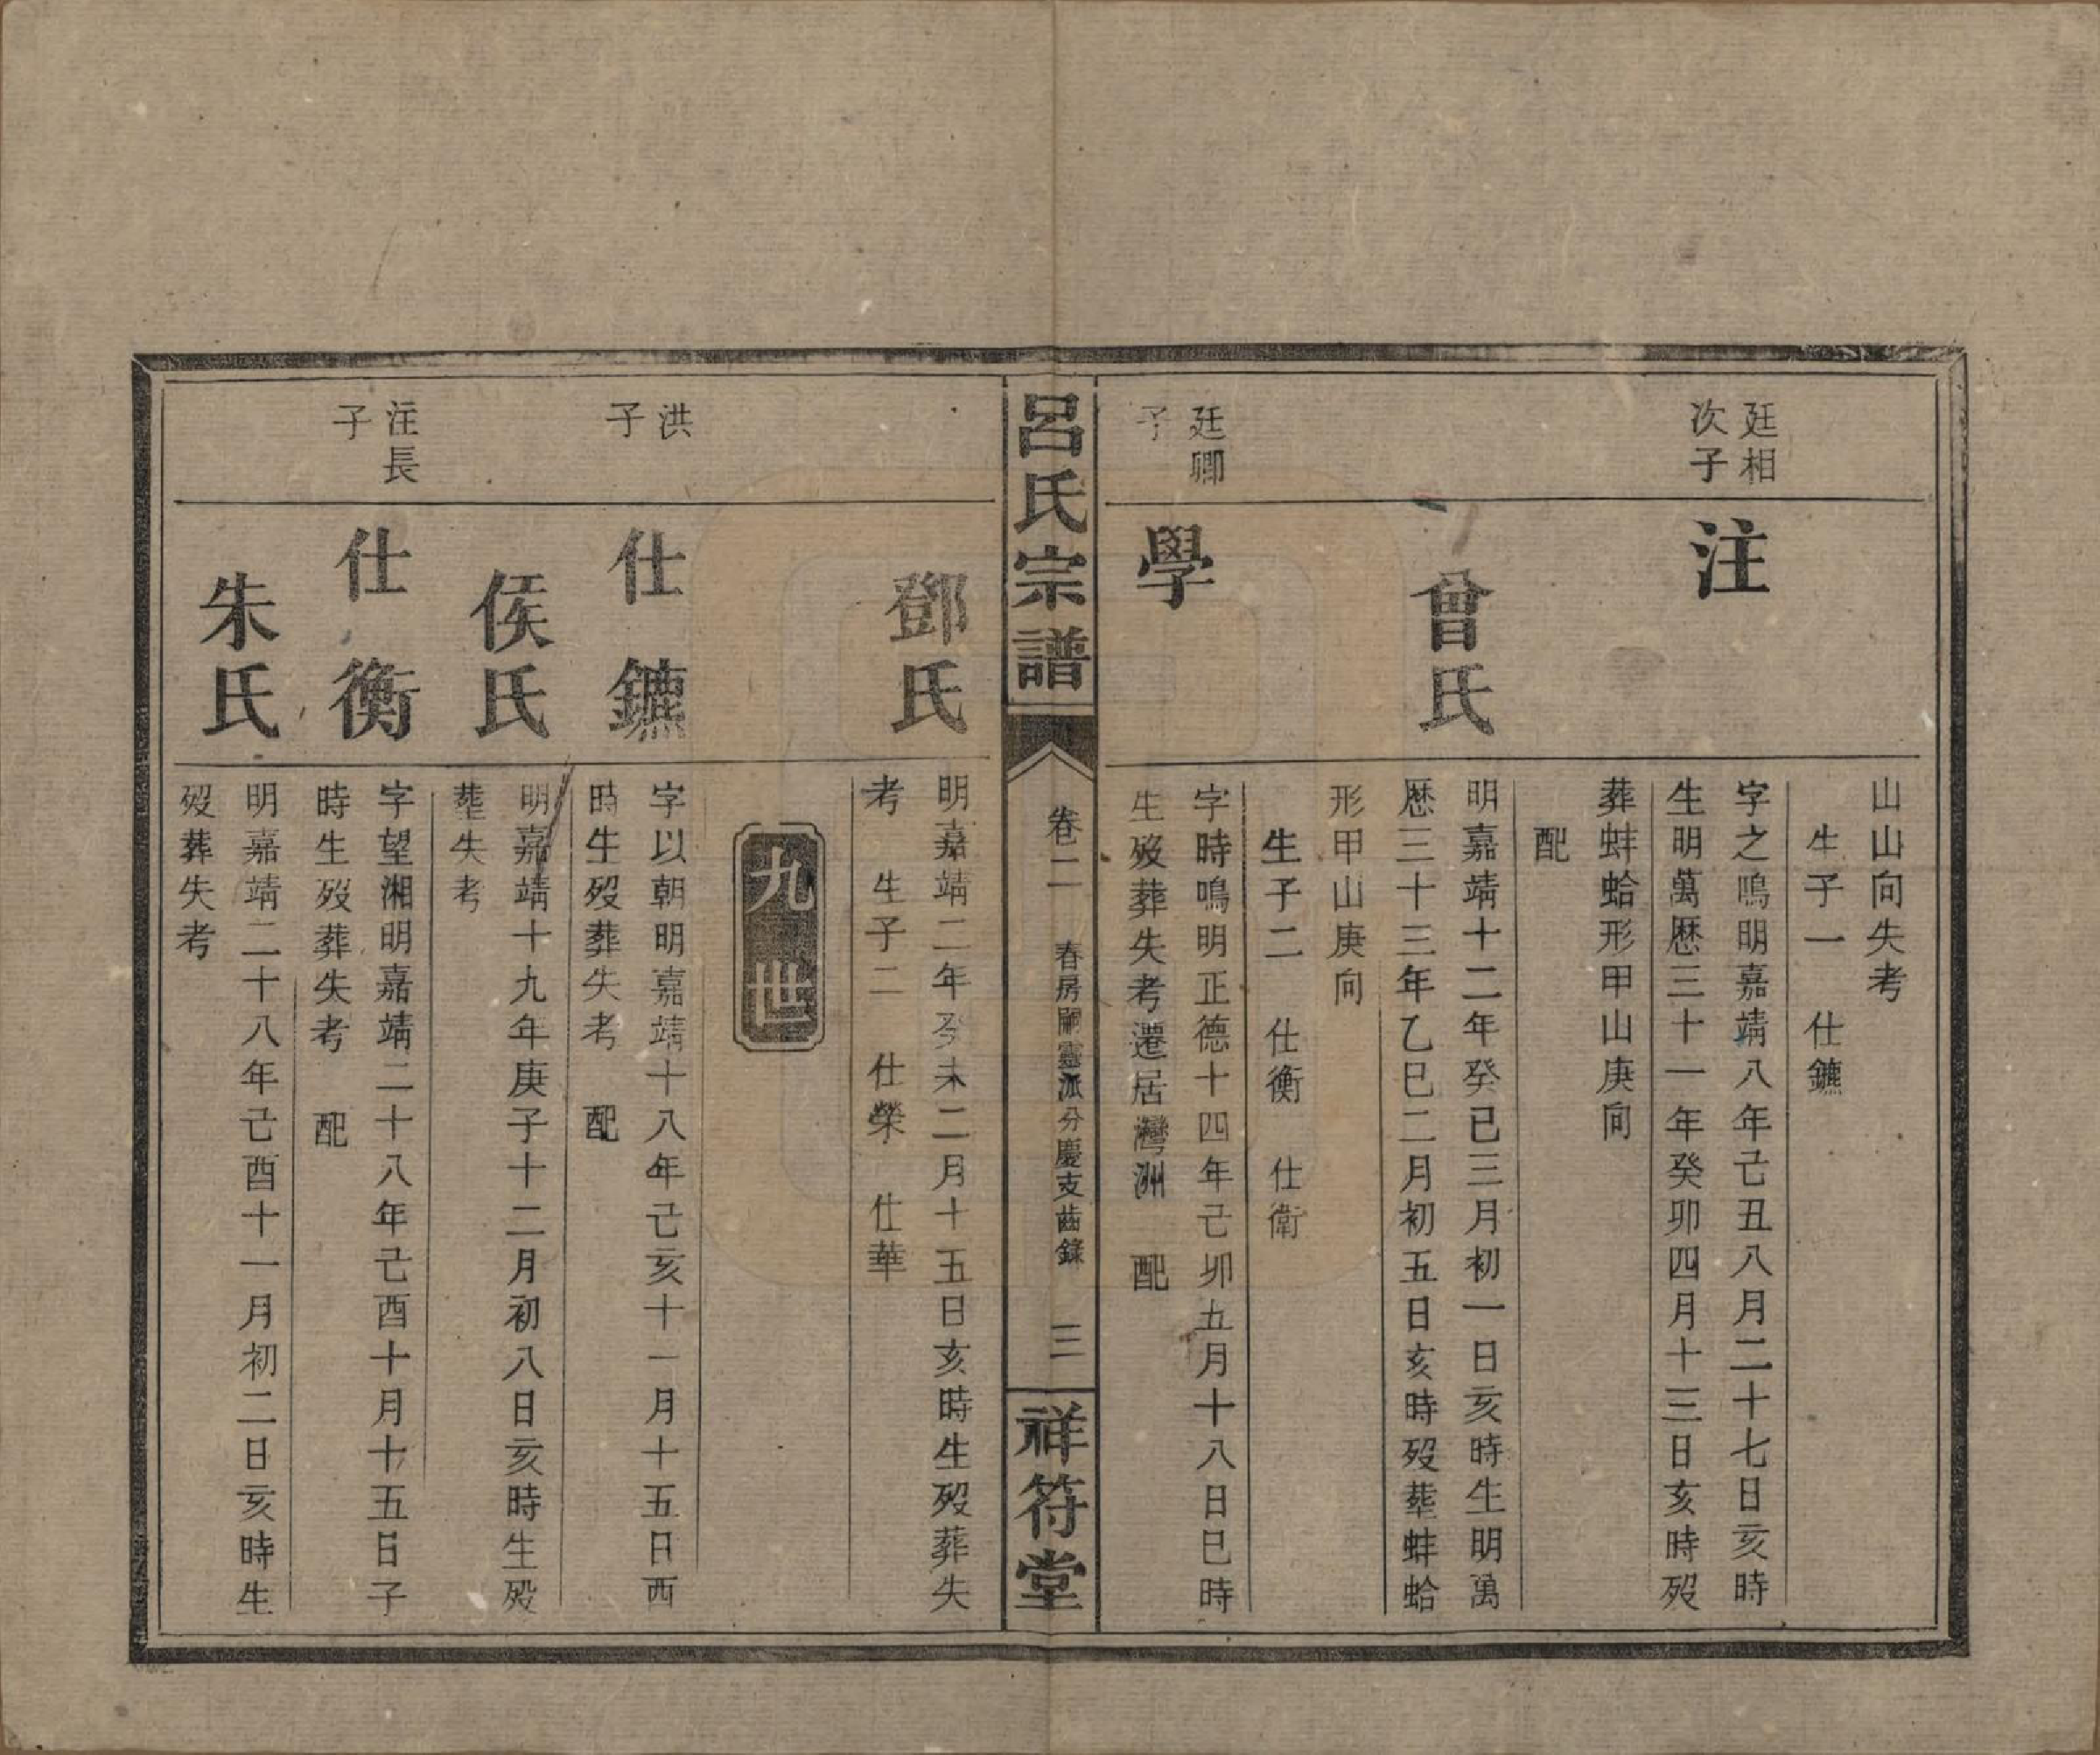 山山向失考
生子一　仕鑣
廷相
次子
注
字之鳴明嘉靖八年己丑八月二十七日亥時
生明萬歷三十一年癸卯四月十三日亥時歿
葬蚌蛤形甲山庚向
配
曾氏
明嘉靖十二年癸巳三月初一日亥時生明萬
歷三十三年乙巳二月初五日亥時歿葬蚌蛤
形甲山庚向
生子二　仕衡　仕衛
廷卿
子
學
字時鳴明正德十四年己卯五月十八日巳時
生歿葬失考遷居灣洲　配
呂氏宗譜
卷二　春房嗣靈派分慶支齒錄　三
祥符堂
鄧氏
明嘉靖二年癸未二月十五日亥時生歿葬失
考　生子二　仕榮　仕華
九世
洪
子
仕鑣
字以朝明嘉靖十八年己亥十一月十五日酉
時生歿葬失考　配
侯氏
明嘉靖十九年庚子十二月初八日亥時生歿
葬失考
注長
子
仕衡
字望湘明嘉靖二十八年己酉十月十五日子
時生歿葬失考　配
朱氏
明嘉靖二十八年己酉十一月初二日亥時生
歿葬失考